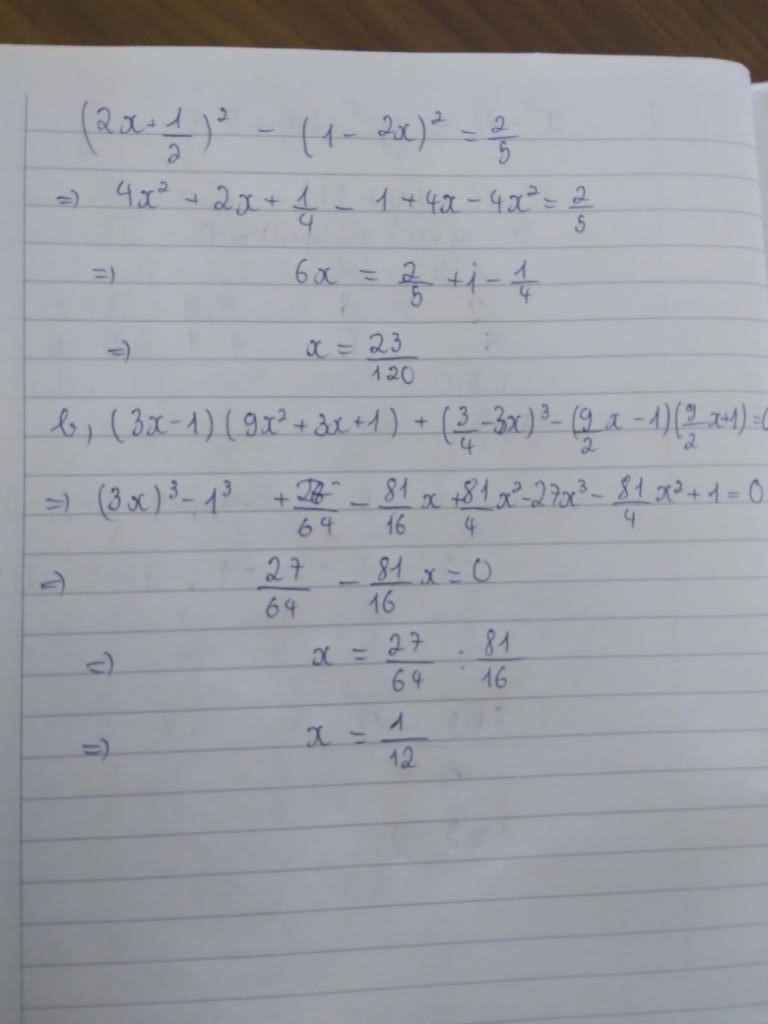 (2x+1/2)² - (1 - 2x)² = 2/5
=> 4x² + 2x + 1/4 - 1 + 4x - 4x² = 2/5
=> 6x = 2/5 + 1 - 1/4
=> x = 23/120
b, (3x-1)(9x²+3x+1) + (3/4-3x)³ - (9/2x - 1)(9/2x+1)=0
=> (3x)³ - 1³ + 27/64 - 81/16x + 81/4x² - 27x³ - 81/4x² + 1 = 0
=> 27/64 - 81/16x = 0
=> x = 27/64 : 81/16
=> x = 1/12